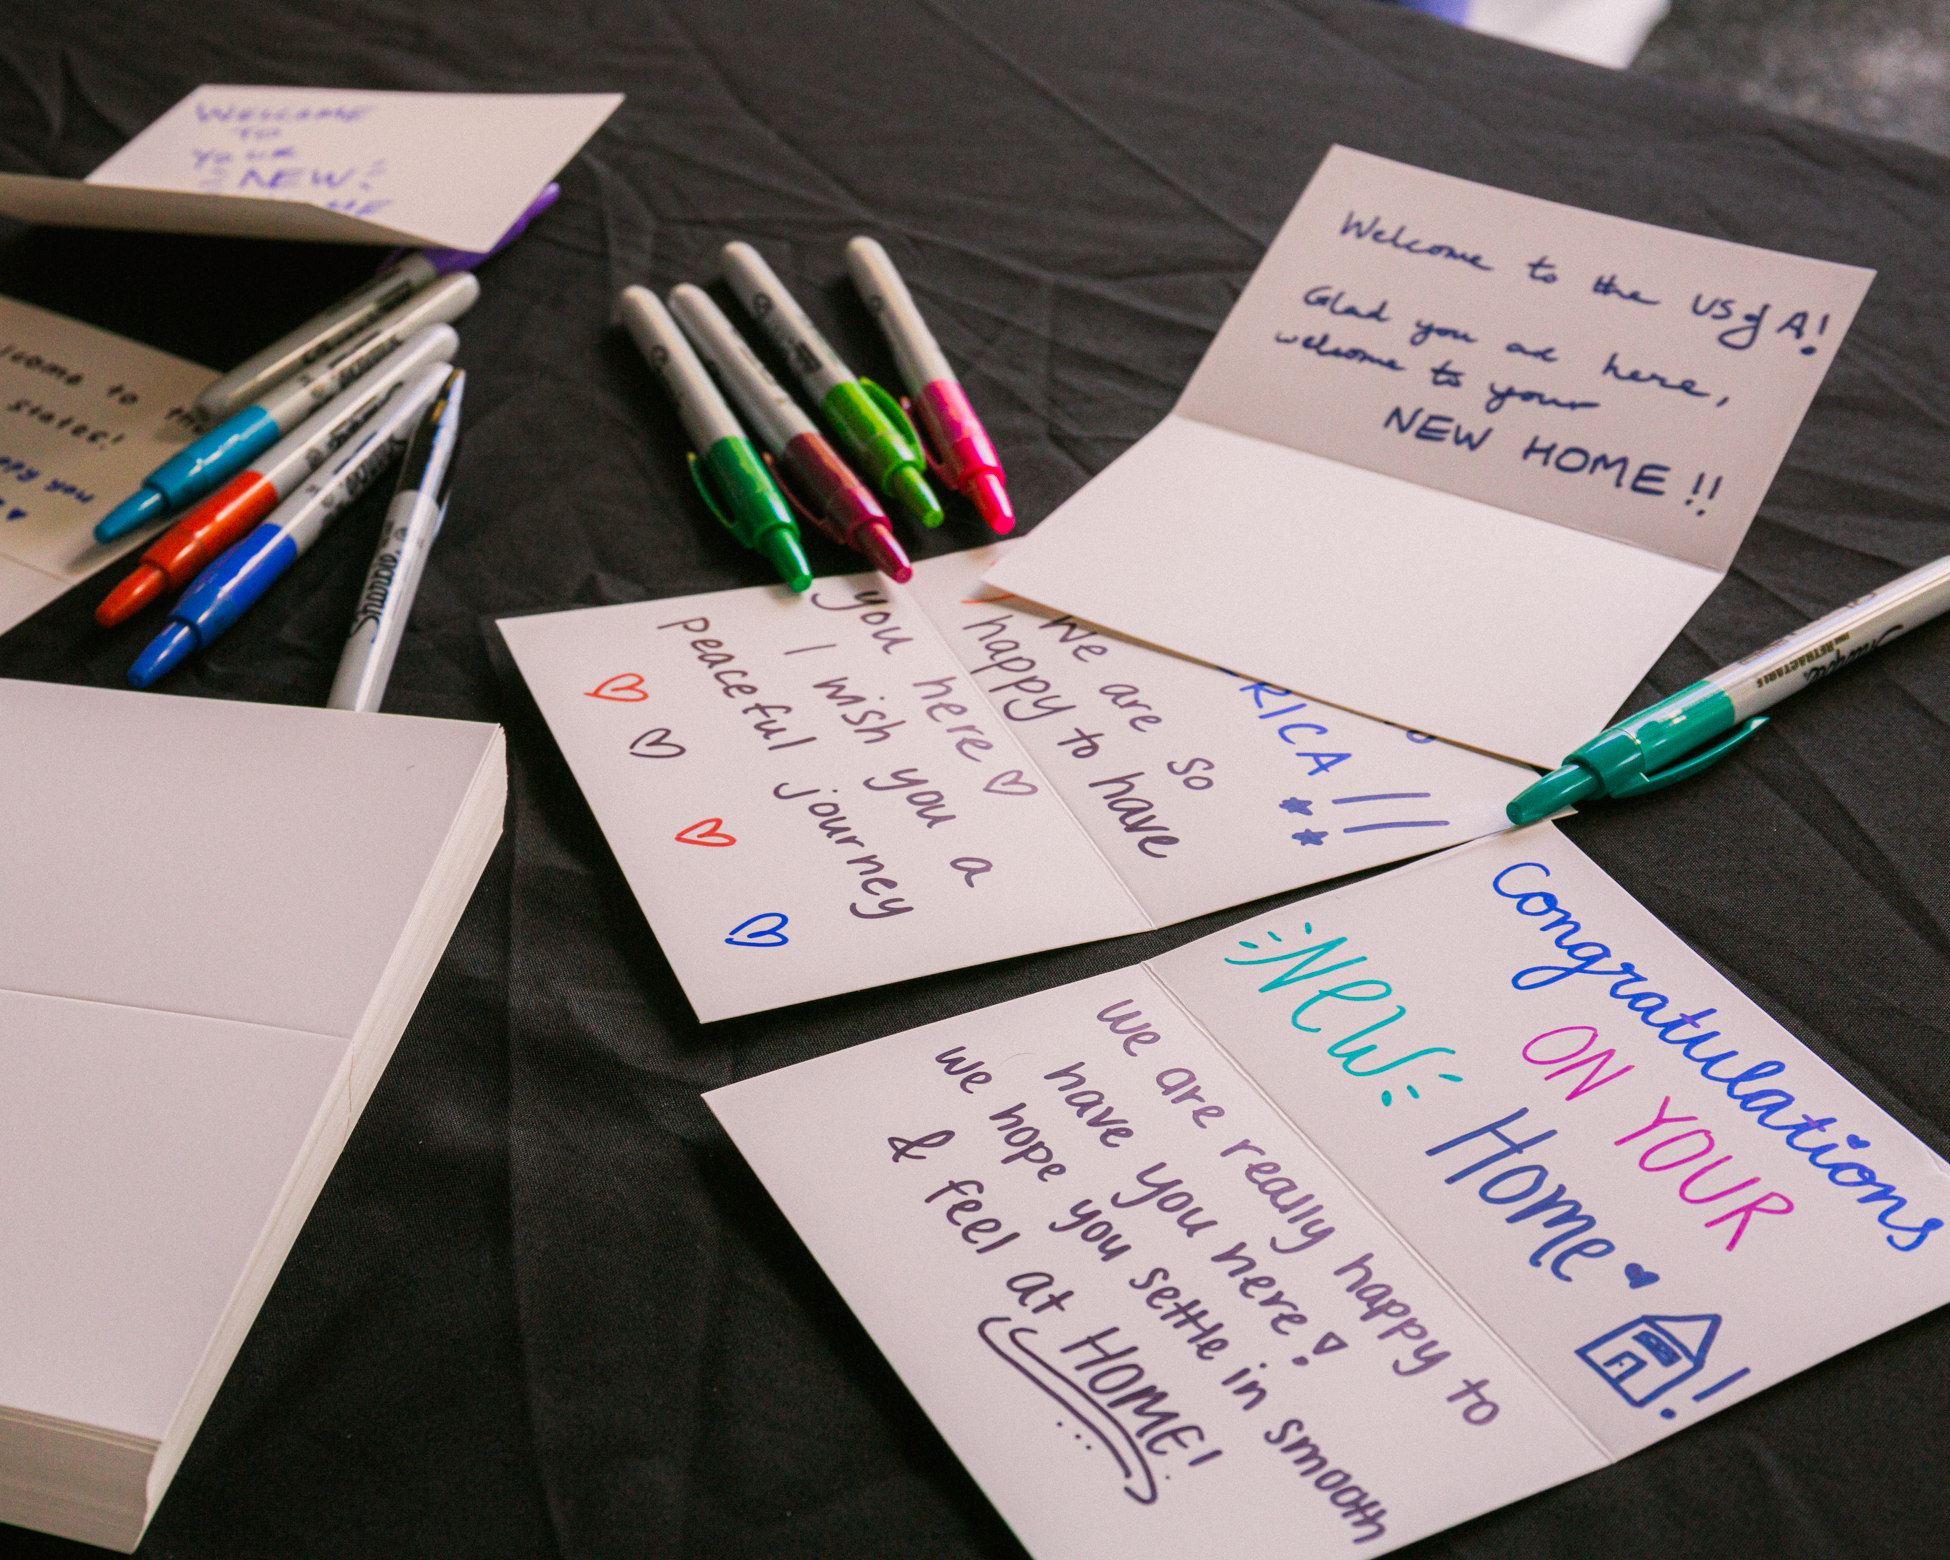 WELCOME
TO
YOUR
NEW!
Welcome to the US of A!
Glad you are here,
welcome to your
NEW HOME!!
to the
states!
you
Sharpie
RICA!!
We are so
happy to have
you here
I wish you a
peaceful journey
Sharpie
RETRACTABLE
Congratulations
ON YOUR
NEW
HOME
!
we are really happy to
have you here!
we hope you settle in smooth
& feel at HOME!